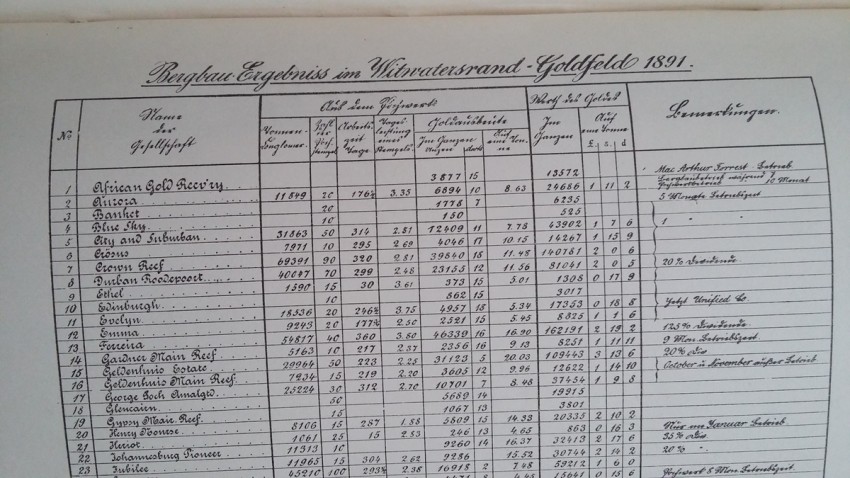 Bergbau-Ergebniss im Witwatersrand-Goldfeld 1891.
No
Name der Gesellschaft
Aus dem Pochwerk
Werth des Goldes
Bemerkungen.
Tonnen-
Zahl der
Arbeits-zeit Tage
Tages leistung eines Stempels
Goldausbeute
Im Ganzen
Auf eine Tonne
Im Ganzen Unzen
dwts
Auf eine Tonne
£ s d
1 African Gold Recov'ry 3877 15 13572 Mac Arthur Forrest-Betrieb
2 Aurora 11849 20 176½ 3.35 6894 10 8.63 24686 1 11 2
3 Banket 20 1778 7 6235 5 Monate Betriebszeit
4 Blue Sky 10 150 525 1 " "
5 City and Suburban 31863 50 314 2.81 12409 11 7.78 43902 1 7 6
6 Crösus 7971 10 295 2.69 4046 17 10.15 14267 1 15 9
7 Crown Reef 69391 90 320 2.81 39840 18 11.48 140781 2 0 6
8 Durban Roodepoort 40047 70 299 2.48 23155 12 11.56 81041 2 0 5 20% Dividende
9 Ethel 1590 15 30 3.61 373 15 5.01 1308 0 17 9
10 Edinburgh 10 862 15 3017
11 Evelyn 18336 20 246½ 3.75 4957 18 5.34 17353 0 18 8 Jetzt Unified Co.
12 Emma 9243 20 177½ 2.50 2521 15 5.45 8825 1 1 6
13 Ferreira 54817 40 360 3.80 46339 16 16.90 162191 2 19 2 125% Dividende
14 Gardner Main Reef 5163 10 217 2.37 2356 16 9.13 8251 1 11 11 9 Mon. Betriebszeit
15 Geldenhuis Estate 29964 50 223 2.25 31123 5 20.03 109443 3 13 6 20% Div
16 Geldenhuis Main Reef 7234 15 219 2.20 3605 12 9.96 12622 1 14 10 October u. November außer Betrieb
17 George Goch Amalgtd 25224 30 312 2.70 10701 7 8.48 37454 1 9 8
18 Glencairn 50 5689 14 19915
19 Gypsy Main Reef 15 1067 13 3801
20 Henry Nourse 8106 15 287 1.88 5809 15 14.33 20335 2 10 2
21 Heriot 1061 25 15 2.83 246 13 4.65 863 0 16 3 Nur im Januar Betrieb
22 Johannesburg Pioneer 11313 10 9260 14 16.37 32413 2 17 6 35% Div.
23 Jubilee 11965 15 304 2.62 9286 15.52 30744 2 14 2 20% "
45210 100 293½ 2.38 16918 2 7.48 59212 1 6 0